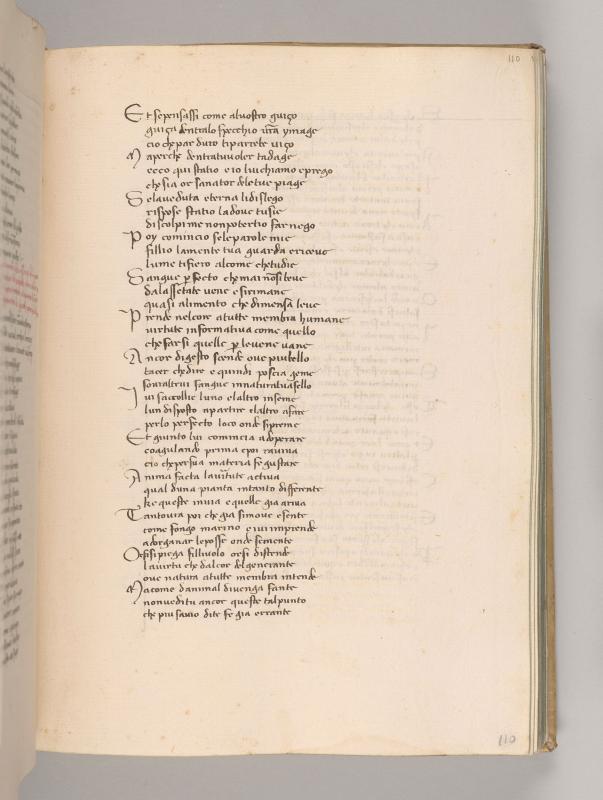 110
Et sepensassi come aluostro guiço
guiça dentralo specchio ur̃a ymage
cio chepar duro tiparrebe uiço
Maperche dentratuuoler tadage
ecco qui statio eio luichiamo eprego
chesia or sanator deletue piage
Selaueduta eterna lidislego
rispose statio ladoue tusie
discolpi me nonpotertio far nego
Poy comincio seleparole mie
fillio lamente tua guarda ericeue
lume tifiero alcome chetudie
Sangue ꝑfecto chemainõsibeue
dalassetate uene esirimane
quasi alimento chedimensa leue
Prende nelcore atutte membra humane
uirtute informatiua come quello
chefarsi quelle ꝑ leuene uane
Ancor digesto scende oue piubello
tacer chedire equindi poscia geme
souraltrui sangue innaturaluasello
Iui saccollie luno elaltro inseme
lun disposto apatire elaltro afare
perlo perfecto loco onde sipreme
Et giunto lui comincia adoperare
coagulando prima epoi rauiua
cio chepersua materia fe gustare
Anima facta lauirtute actiua
qual duna pianta intanto differente
ke queste inuia equelle gia ariua
Tantoura poi che gia simoue esente
come fongo marino eiui imprende
adorganar leposse onde semente
Orsisipiega filliuolo orsi distende
lauirtu che dalcor delgenerante
oue natura atutte membra intende
Macome danimal diuenga fante
nonueditu ancor queste talpunto
che piu sauio dite fe gia errante
110